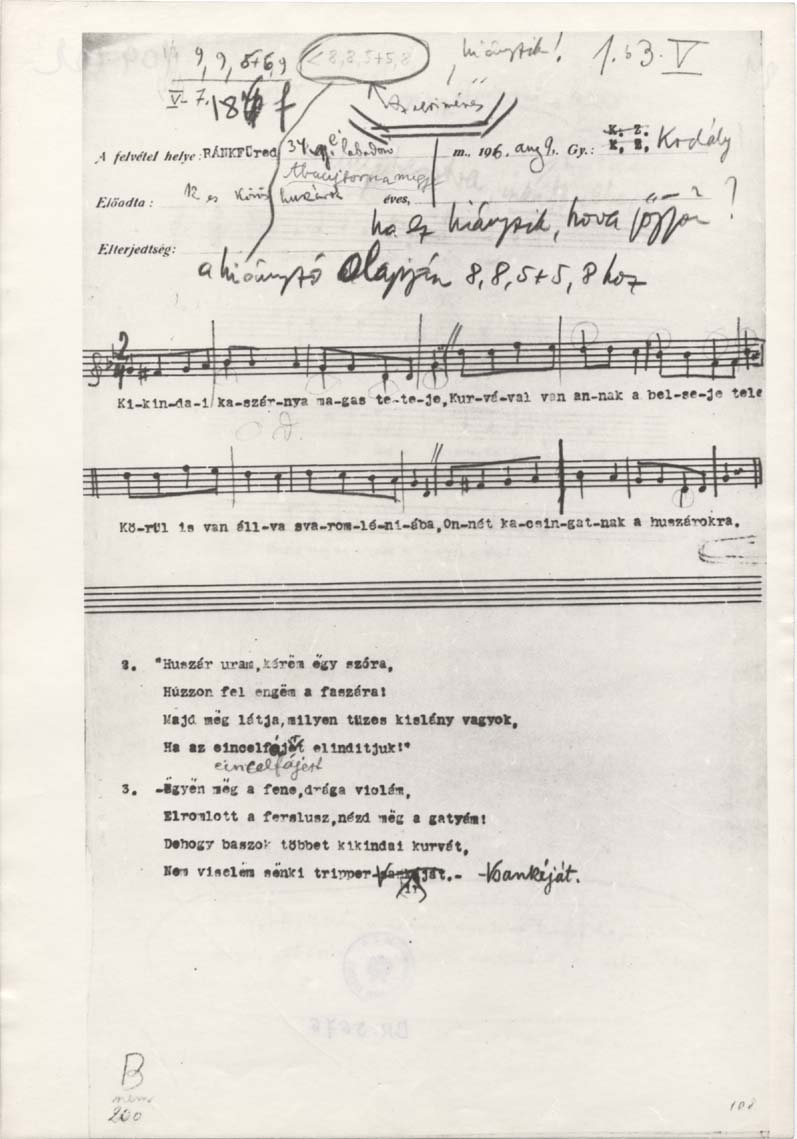 9, 9, 5+6, 9 < 8, 8, 5+5, 8 hiányzik! 1. b3. V
V- 7. 18 f
A felvétel helye: RÁNKFÜred m., 1916. aug 9. Gy.: K. Z. Kodály
K. Z.
Abaujtorna megye
Előadta: 12 es Közös huszárok éves,
ha ez hiányzik, hova jőjjön?
Elterjedtség:
a hiányzó alapján 8, 8, 5+5, 8 hoz
Ki-kin-da-i ka-szár-nya ma-gas te-te-je, Kur-vá-val van an-nak a bel-se-je tele
Kö-rül is van áll-va sva-rom-lé-ni-ába, On-nét ka-csin-gat-nak a huszárokra.
2. "Huszár uram, kérëm ëgy szóra,
Húzzon fel engëm a faszára!
Majd mëg látja, milyen tüzes kislány vagyok,
Ha az eincelfájĕt elindítjuk!"
eincelfájert
3. -Ëgyën mëg a fene, drága violám,
Elromlott a ferslusz, nézd mëg a gatyám!
Dehogy baszok többet kikindai kurvét,
Nem viselëm sënki tripper- -bankéját.
B
nem
200
108